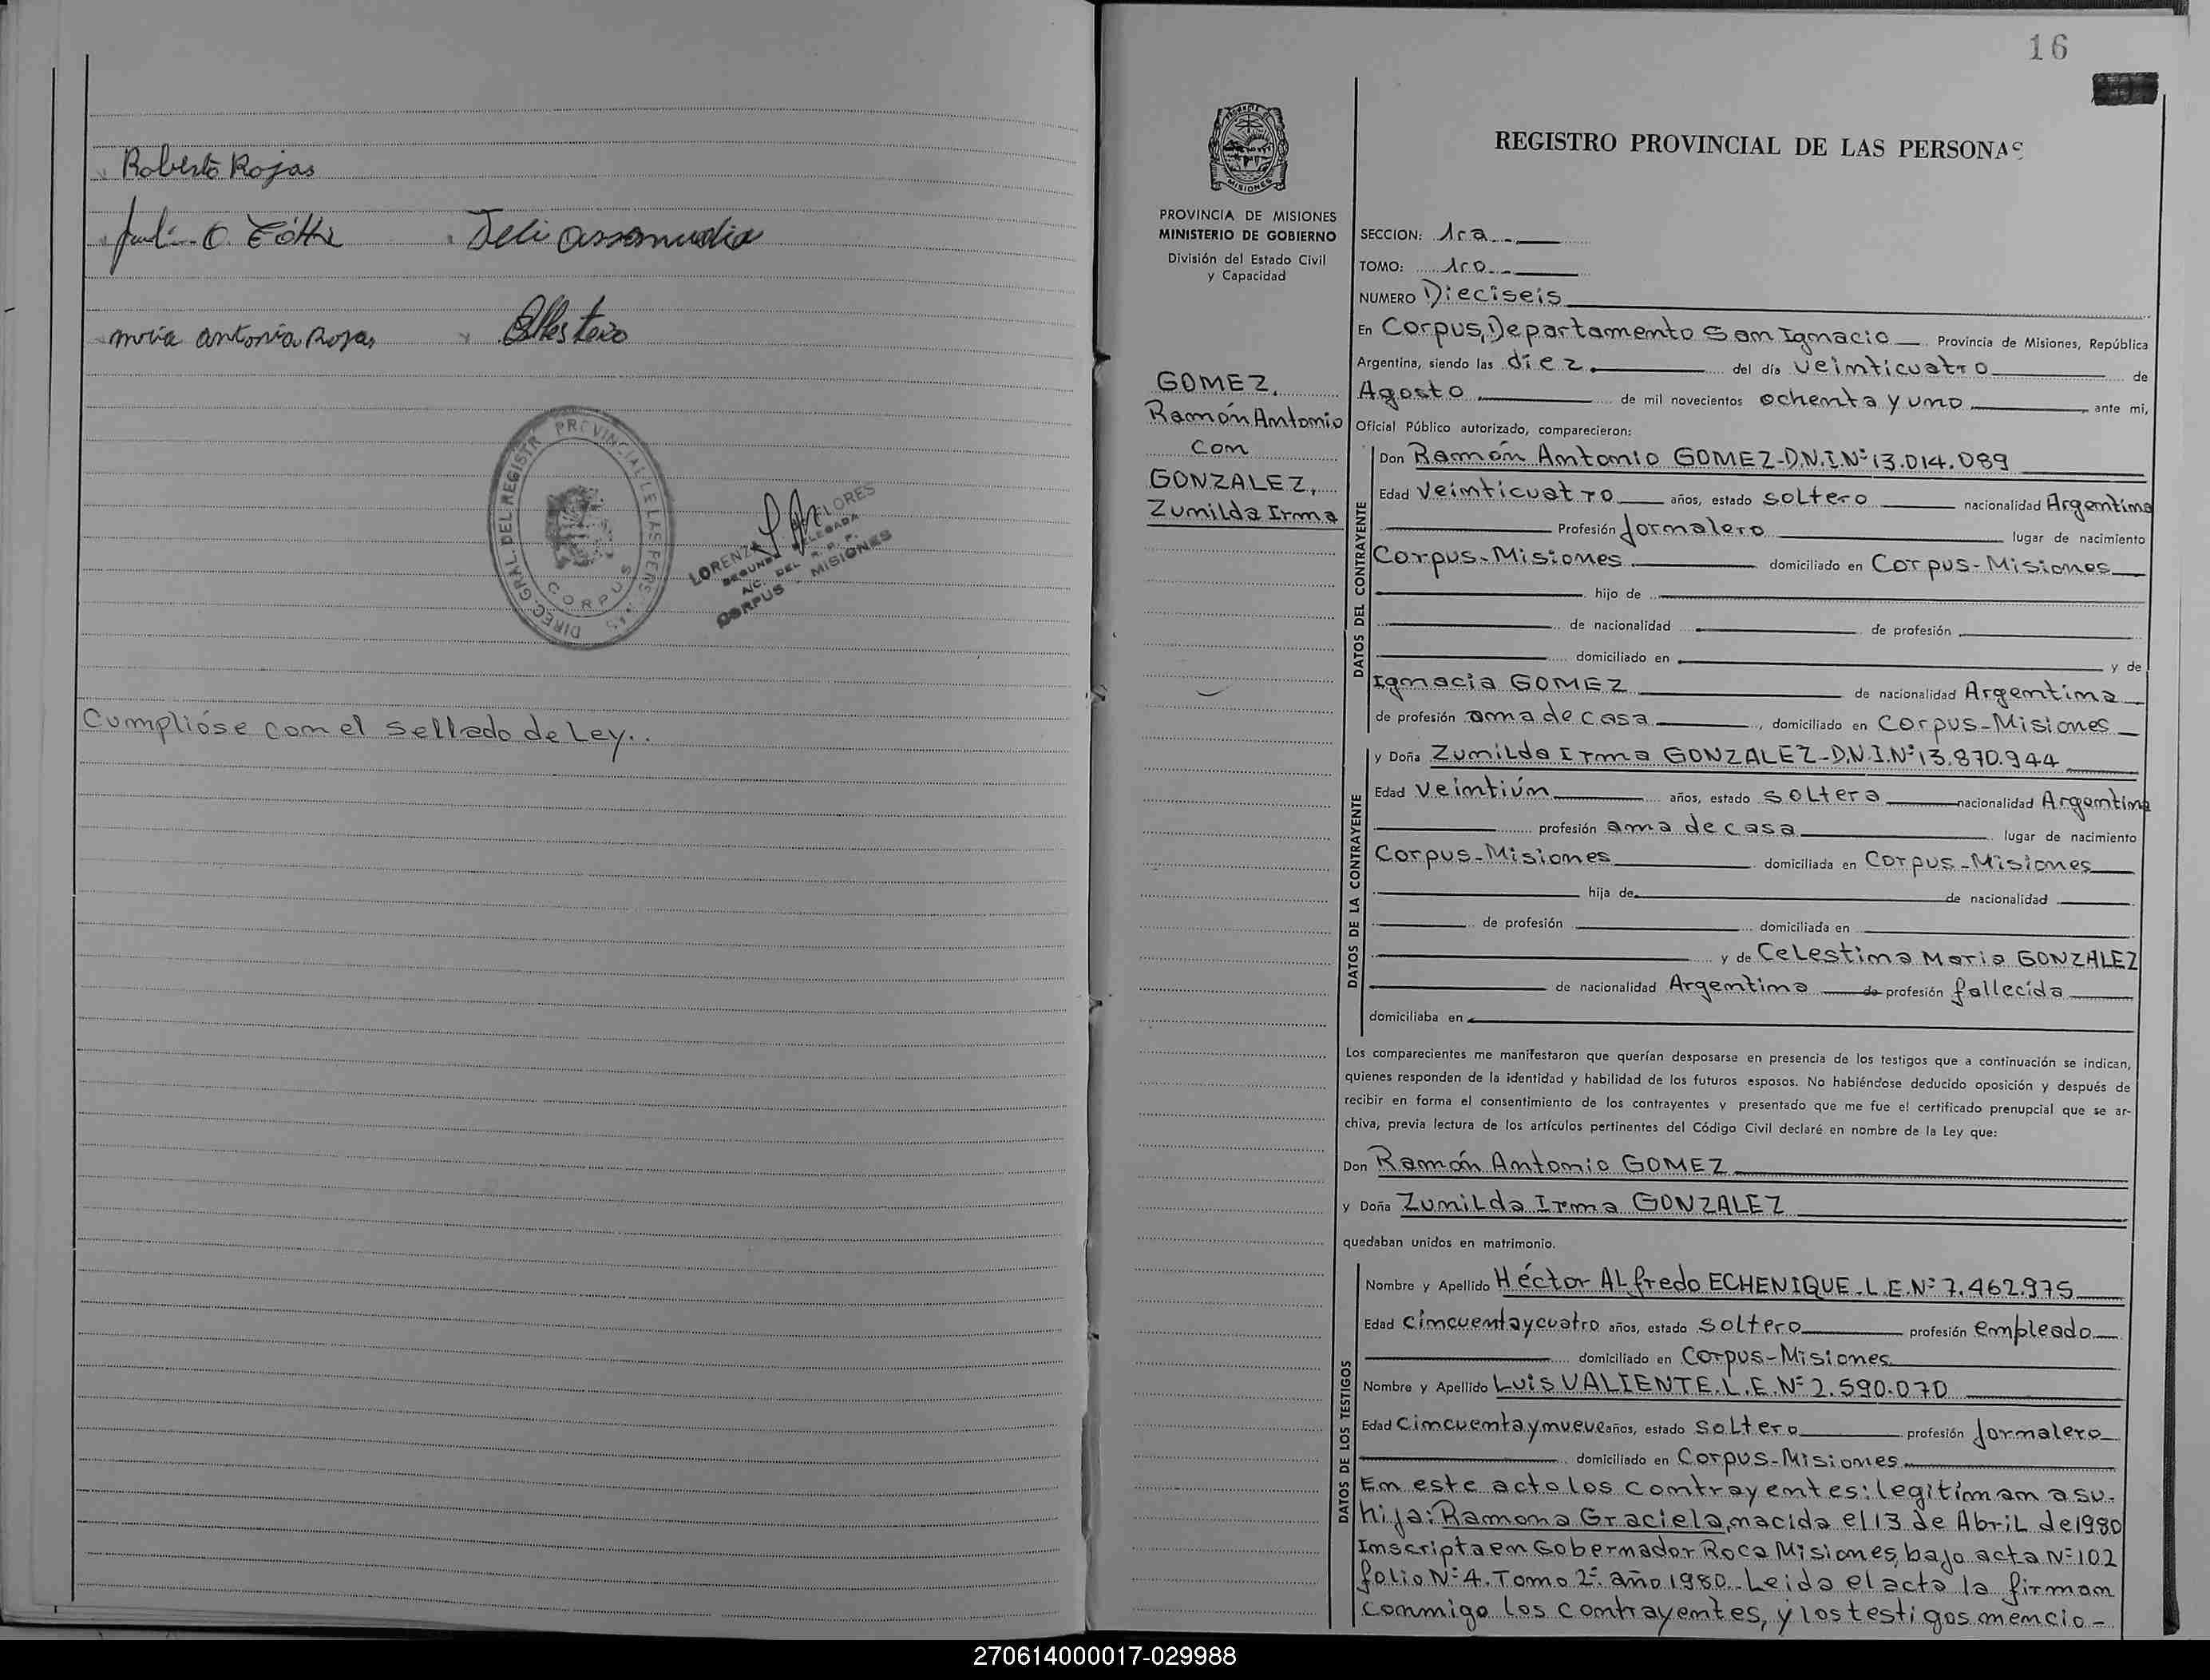 Roberto Rojas
Antonia Rojas
DIREC. GRAL. DEL REGISTR PROVINCIAL DE LAS PERS.
CORPUS
LORENZ FLORES
SEGUND DELEGADA
A/C. DEL R. P. P.
CORPUS - MISIONES
Cumplióse con el sellado de Ley..
16
PROVINCIA DE MISIONES
MINISTERIO DE GOBIERNO
División del Estado Civil
y Capacidad
GOMEZ,
Ramón Antonio
con
GONZALEZ,
Zunilda Irma
REGISTRO PROVINCIAL DE LAS PERSONAS
SECCION: 1ra
TOMO: 1ro
NUMERO Dieciseis
En Corpus, Departamento San Ignacio Provincia de Misiones, República
Argentina, siendo las diez del día veinticuatro de
Agosto de mil novecientos ochenta y uno ante mi,
Oficial Público autorizado, comparecieron:
DATOS DEL CONTRAYENTE
Don Ramón Antonio GOMEZ-D.N.I.Nº 13.014.089
Edad veinticuatro años, estado soltero nacionalidad Argentina
Profesión Jornalero lugar de nacimiento
Corpus-Misiones domiciliado en Corpus-Misiones
hijo de
de nacionalidad de profesión
domiciliado en y de
Ignacia GOMEZ de nacionalidad Argentina
de profesión ama de casa, domiciliado en Corpus-Misiones
DATOS DE LA CONTRAYENTE
y Doña Zunilda Irma GONZALEZ-D.N.I.Nº 13.870.944
Edad veintiún años, estado soltera nacionalidad Argentina
profesión ama de casa lugar de nacimiento
Corpus-Misiones domiciliada en Corpus-Misiones
hija de de nacionalidad
de profesión domiciliada en
y de Celestina Maria GONZALEZ
de nacionalidad Argentina de profesión fallecida
domiciliaba en
Los comparecientes me manifestaron que querían desposarse en presencia de los testigos que a continuación se indican,
quienes responden de la identidad y habilidad de los futuros esposos. No habiéndose deducido oposición y después de
recibir en forma el consentimiento de los contrayentes y presentado que me fue el certificado prenupcial que se ar-
chiva, previa lectura de los artículos pertinentes del Código Civil declaré en nombre de la Ley que:
Don Ramón Antonio GOMEZ
y Doña Zunilda Irma GONZALEZ
quedaban unidos en matrimonio.
DATOS DE LOS TESTIGOS
Nombre y Apellido Héctor Alfredo ECHENIQUE.L.E.Nº 7.462.975
Edad cincuenta y cuatro años, estado soltero profesión empleado
domiciliado en Corpus-Misiones
Nombre y Apellido Luis VALIENTE.L.E.Nº 2.590.070
Edad cincuenta y nueve años, estado soltero profesión Jornalero
domiciliado en Corpus-Misiones
En este acto los contrayentes: legitiman a su-
hija: Ramona Graciela, nacida el 13 de Abril de 1980
Inscripta en Gobernador Roca Misiones, bajo acta Nº 102
folio Nº 4. Tomo 2º. año 1980. Leida el acta la firman
conmigo los contrayentes, y los testigos mencio-
270614000017-029988